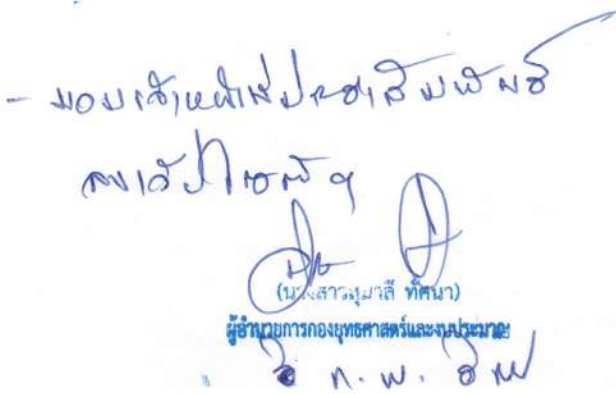 - มอบเจ้าหน้าที่ประชาสัมพันธ์
ลงเว็บไซต์ฯ
(นางสาวสุมาลี ทัศนา)
ผู้อำนวยการกองยุทธศาสตร์และงบประมาณ
ก.พ.